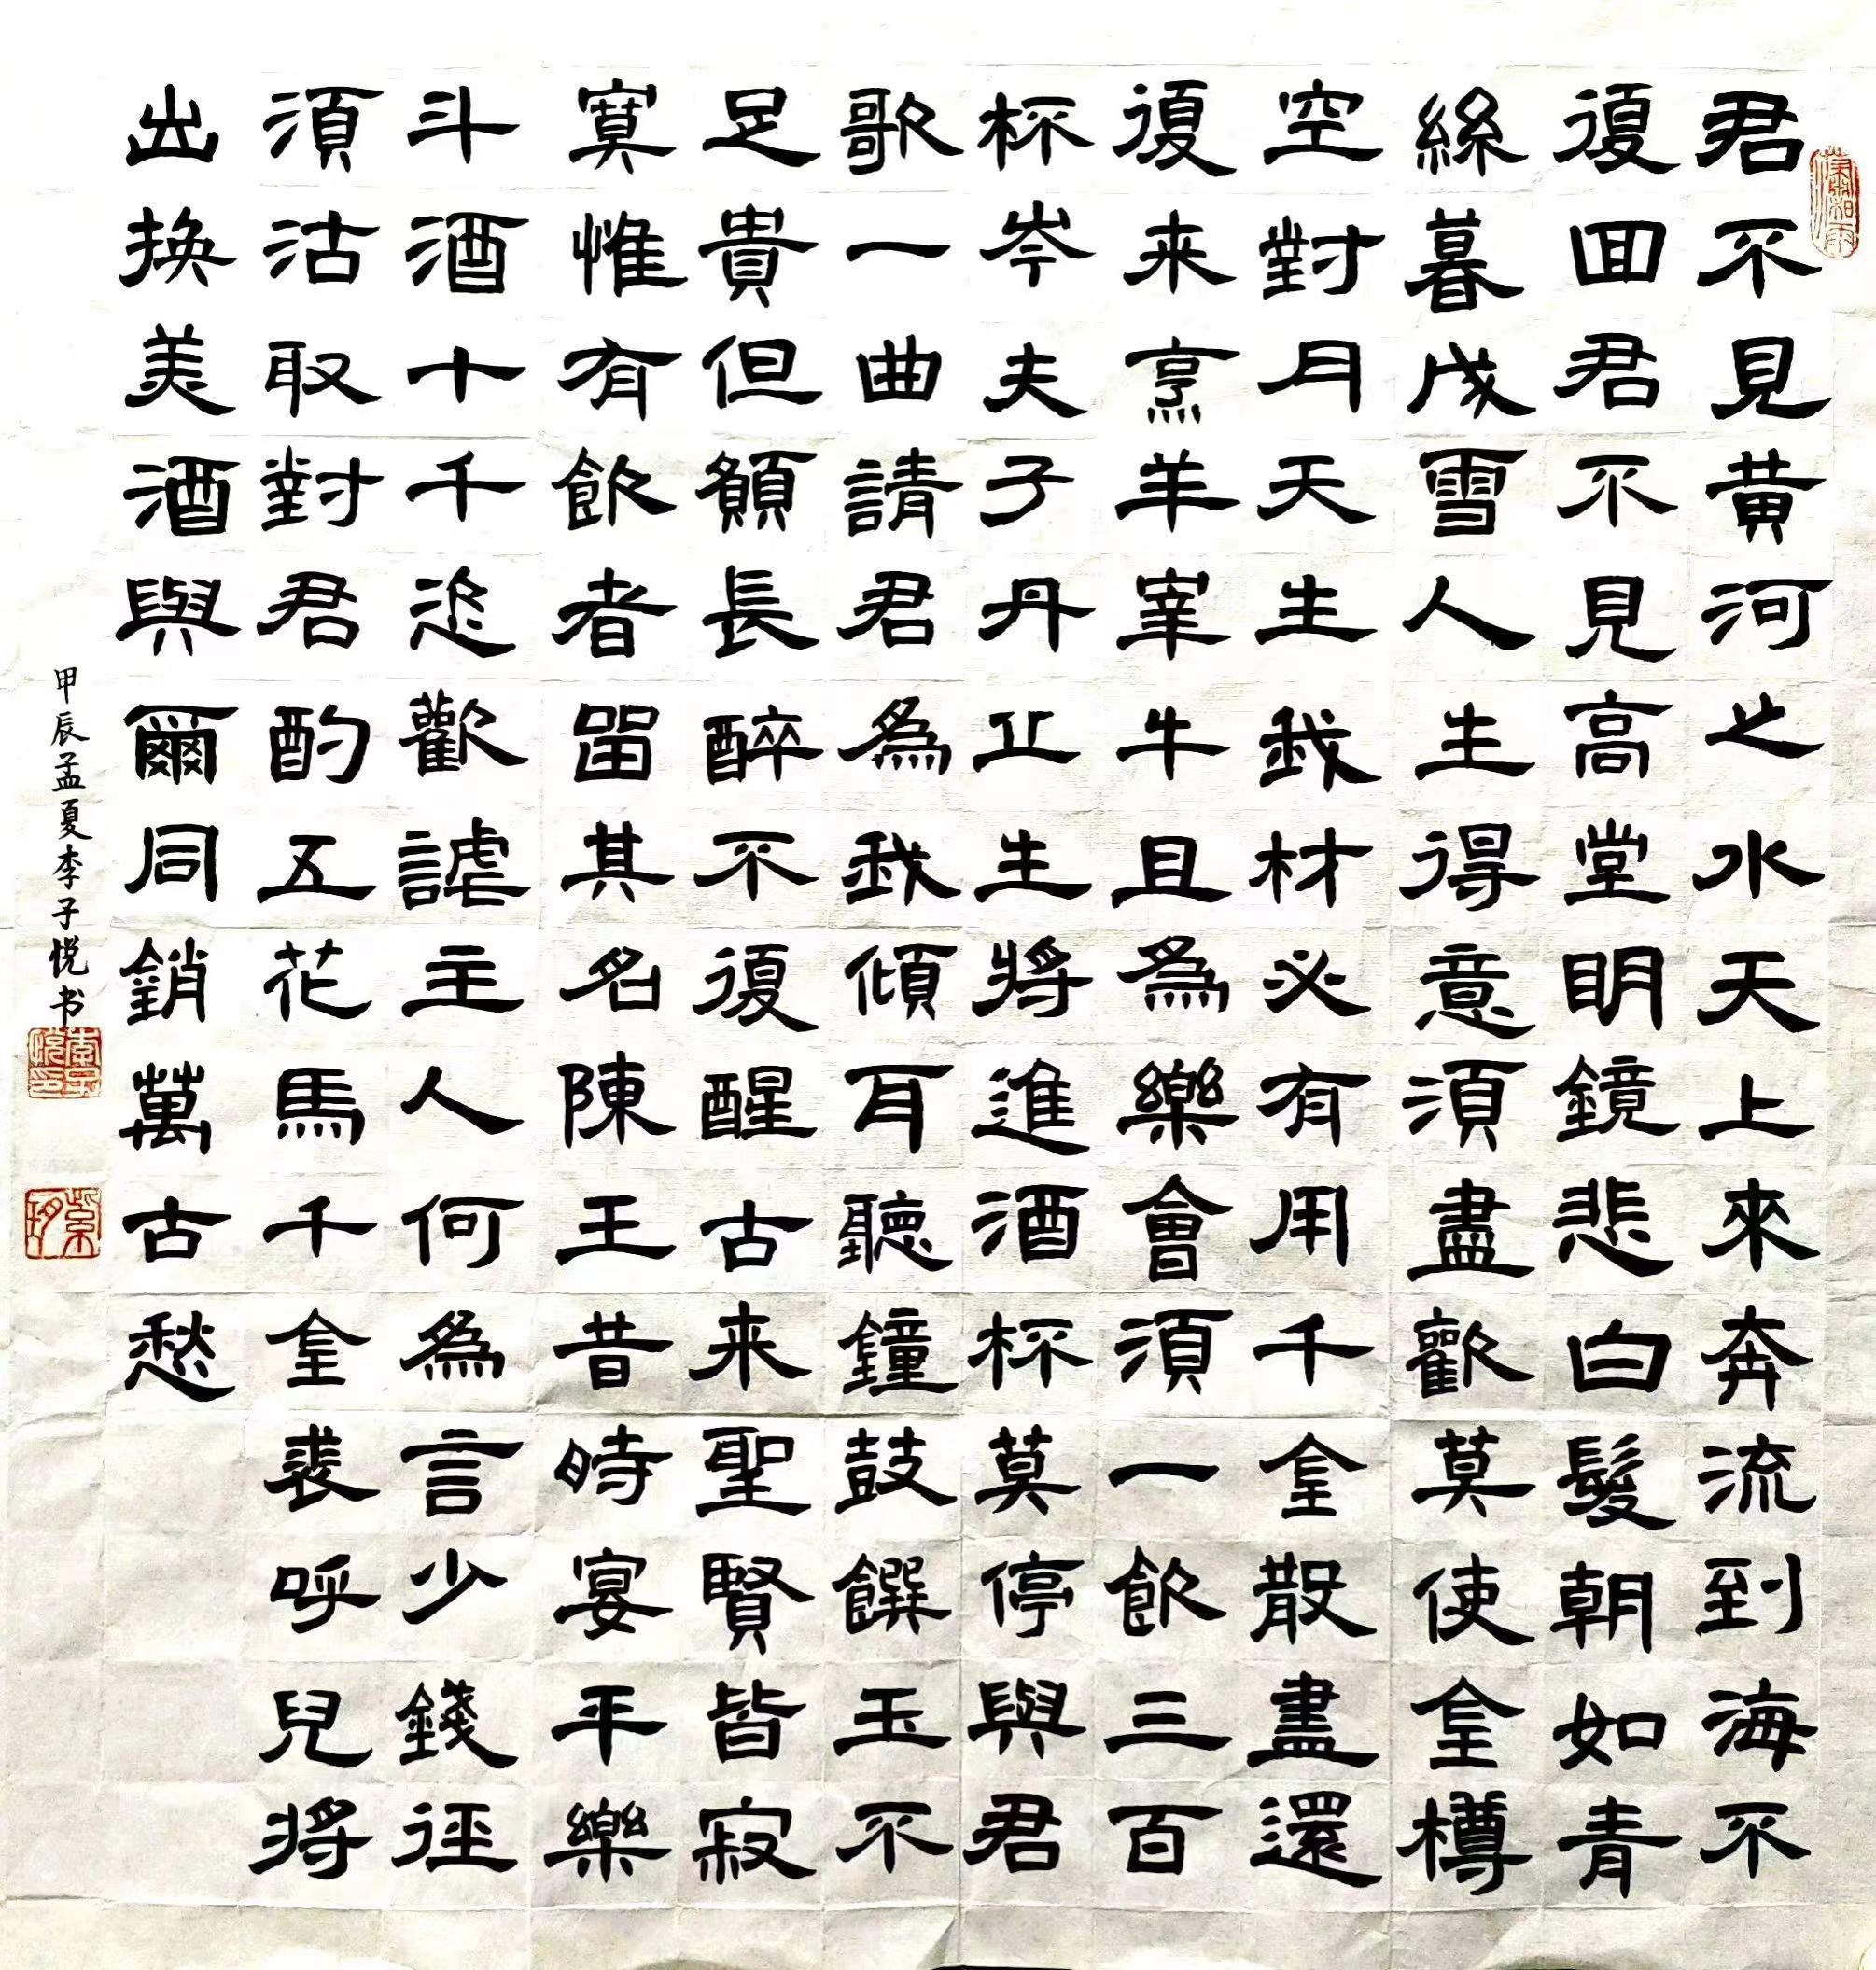 君不見黄河之水天上來奔流到海不
復回君不見高堂明鏡悲白髮朝如青
絲暮成雪人生得意須盡歡莫使金樽
空對月天生我材必有用千金散盡還
復来烹羊宰牛且為樂會須一飲三百
杯岑夫子丹丘生將進酒杯莫停與君
歌一曲請君為我傾耳聽鐘鼓饌玉不
足貴但願長醉不復醒古来聖賢皆寂
寞惟有飲者留其名陳王昔時宴平樂
斗酒十千恣歡謔主人何為言少錢徑
須沽取對君酌五花馬千金裘呼兒將
出換美酒與爾同銷萬古愁
甲辰孟夏李子悦书
李子悦印